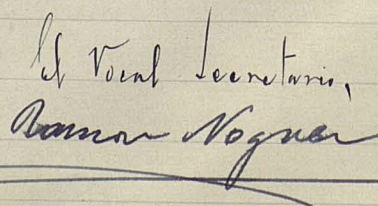 El Vocal Secretario,
Ramon Noguer